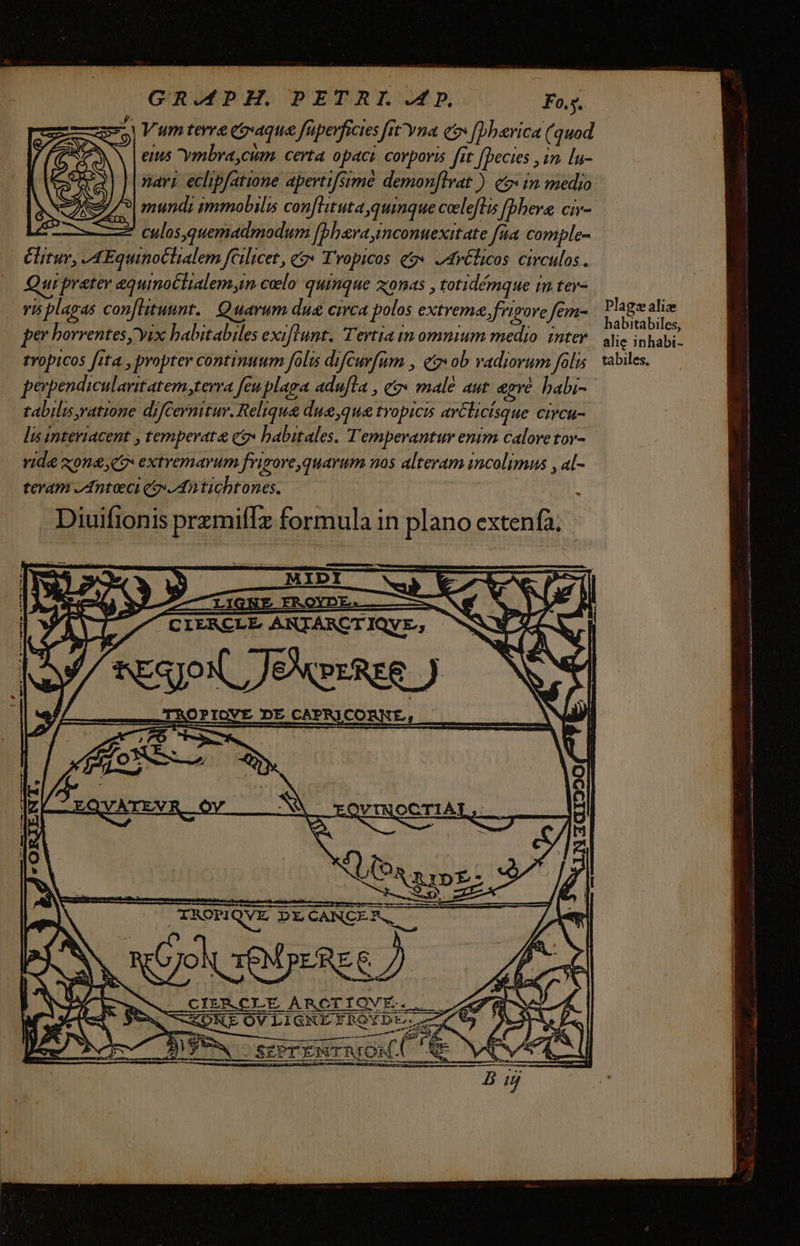 GRAPH. PETRI AP. Fo.5.
Vum terræ & aquæ ſuperficies ſit vna & ſphærica (quod
eius vmbra,cùm certa opaci corporis ſit ſpecies,in lu-
nari eclipſatione apertiſsimè demonſtrat) & in medio
mundi immobilis conſtituta,quinque cœleſtis ſphere cir-
culos,quemadmodum ſphæra,inconuexitate ſua comple-
ctitur, AEquinoctialem ſcilicet, & Tropicos & Arcticos circulos.
Qui præter æquinoctialem,in cœlo quinque zonas , totidémque in ter-
ris plagas conſtituunt. Quarum duæ circa polos extremæ,frigore ſem-
per horrentes,vix habitabiles exiſtunt. Tertia in omnium medio inter
tropicos ſita , propter continuum ſolis diſcurſum , & ob radiorum ſolis
perpendicularitatem,terra ſeu plaga aduſta , & malè aut ægrè habi-
tabilis,ratione diſcernitur. Reliquæ duæ,quæ tropicis arcticíſque circu-
lis interiacent , temperatæ & habitales. Temperantur enim calore tor-
ridæ zonæ,& extremarum frigore,quarum nos alteram incolimus , al-
teram Antœci & Antichtones.
Plagæ aliæ
habitabiles,
alię inhabi-
tabiles.
Diuiſionis præmiſſæ formula in plano extenſa.
MIDI
LIGNE FROYDE.
CIERCLE ANTARCTIQVE,
REGION TENPEREE
TROPIQVE DE CAPRICORNE,
ZONE
EQVATEVR OV EQVINOCTIAL,
TORRIDE.
ORIENT.
OCCIDENT
TROPIQVE DE CANCER,
REGION TEMPEREE
CIERCLE ARCTIQVE.
ZONE OV LIGNE FROYDE.
SEPTENTRION.
B iij